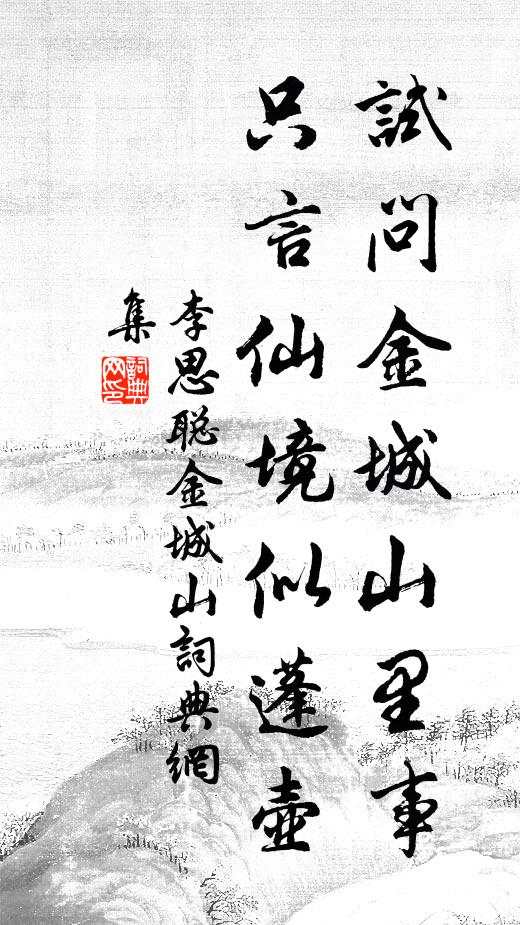 試問金城山里事
只言仙境似蓬壺
李思聪金城山詞典網
集
詞典
网印